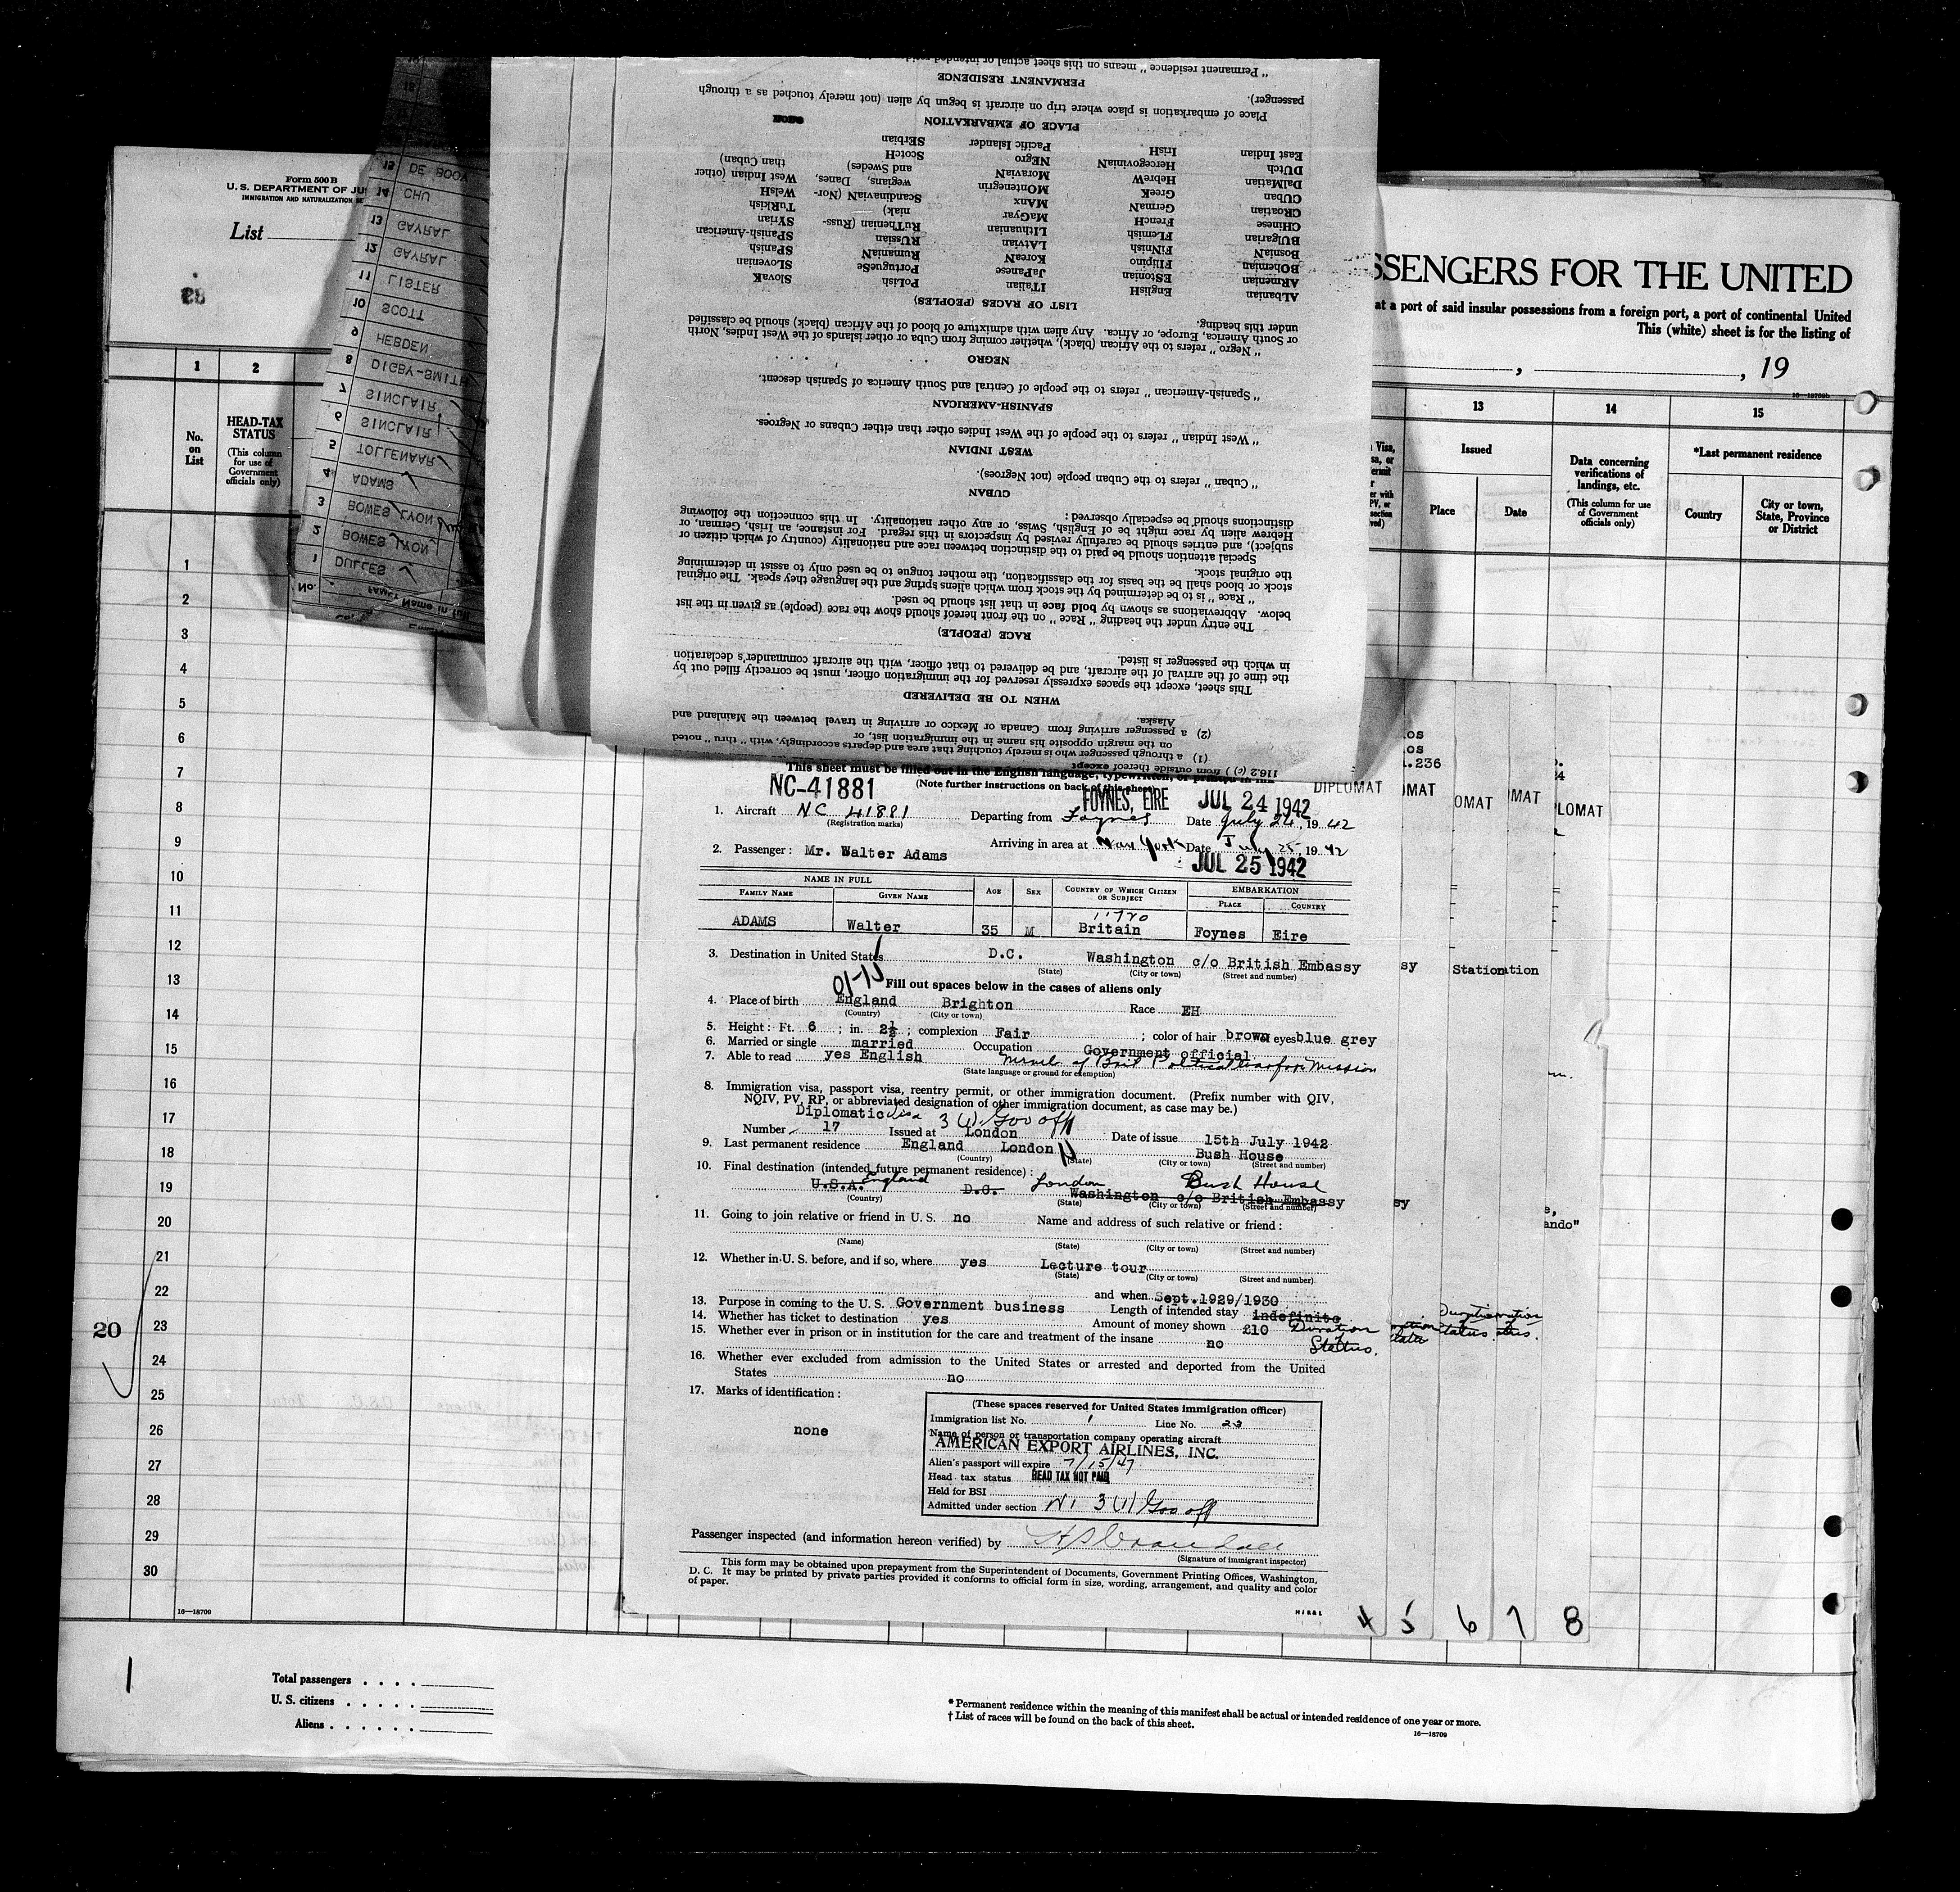 Form 500 B
U. S. DEPARTMENT OF JU
IMMIGRATION AND NATURALIZATION SE
List
SSENGERS FOR THE UNITED
at a port of said insular possessions from a foreign port, a port of continental United
This (white) sheet is for the listing of
, , 19
16—18709b
1 2
No. on List
HEAD-TAX STATUS
(This column for use of Government officials only)
13 14 15
Issued
Place Date
Data concerning verifications of landings, etc.
(This column for use of Government officials only)
*Last permanent residence
Country
City or town, State, Province or District
No. FAMILY Name in full
1 DULLES
2 BOWES LYON
3 BOWES LYON
4 ADAMS
5 TOLLENAAR
6 SINCLAIR
7 SINCLAIR
8 DIGBY-SMITH
9 HEBDEN
10 SCOTT
11 LISTER
12 GAYRAL
13 GAYRAL
14 CHU
15 DE BOOY
116.2 (c) ) from outside thereof except
(1) a through passenger who is merely touching that area and departs accordingly, with "thru" noted
on the margin opposite his name in the immigration list, or
(2) a passenger arriving from Canada or Mexico or arriving in travel between the Mainland and
Alaska.
WHEN TO BE DELIVERED
This sheet, except the spaces expressly reserved for the immigration officer, must be correctly filled out by
the time of the arrival of the aircraft, and be delivered to that officer, with the aircraft commander's declaration
in which the passenger is listed.
RACE (PEOPLE)
The entry under the heading "Race" on the front hereof should show the race (people) as given in the list
below. Abbreviations as shown by bold face in that list should be used.
"Race" is to be determined by the stock from which aliens spring and the language they speak. The original
stock or blood shall be the basis for the classification, the mother tongue to be used only to assist in determining
the original stock.
Special attention should be paid to the distinction between race and nationality (country of which citizen or
subject), and entries should be carefully revised by inspectors in this regard. For instance, an Irish, German, or
Hebrew alien by race might be of English, Swiss, or any other nationality. In this connection the following
distinctions should be especially observed:
CUBAN
"Cuban" refers to the Cuban people (not Negroes).
WEST INDIAN
"West Indian" refers to the people of the West Indies other than either Cubans or Negroes.
SPANISH-AMERICAN
"Spanish-American" refers to the people of Central and South America of Spanish descent.
NEGRO
"Negro" refers to the African (black), whether coming from Cuba or other islands of the West Indies, North
or South America, Europe, or Africa. Any alien with admixture of blood of the African (black) should be classified
under this heading.
LIST OF RACES (PEOPLES)
AlBanian EnglisH ITalian PoLish SlovaK
ARmenian EStonian JaPanese PortuguеSe SLovenian
BOhemian FIlipino KoreaN RumaniaN SPanish
BosniaN FiNNish LAtvian RUSsian SPanish-American
BUlgarian FLemish LIthuanian RuThenian (Russ- SYrian
CHinese FrencH MaGyar niak) TuRkish
CRoatian GermaN MAnx ScandinaviaN (Nor- WelsH
CUban GreeK MOntenegrin wegians, Danes, West Indian (other
DalMatian HebreW MoraviaN and Swedes) than Cuban)
DUtch HercegoviniaN NEgro ScotcH
East Indian IrisH Pacific Islander SErbian
PLACE OF EMBARKATION
Place of embarkation is place where trip on aircraft is begun by alien (not merely touched as a through
passenger).
PERMANENT RESIDENCE
"Permanent residence" means on this sheet actual or intended
This sheet must be filled out in the English language, typewritten, or printed in ink
(Note further instructions on back of this sheet)
NC-41881
FOYNES, EIRE JUL 24 1942
DIPLOMAT OMAT OMAT MAT LOMAT
1. Aircraft NC 41881 Departing from Foynes Date July 24, 1942
(Registration marks)
Arriving in area at New York Date July 25, 1942
2. Passenger: Mr. Walter Adams
JUL 25 1942
NAME IN FULL
FAMILY NAME GIVEN NAME AGE SEX COUNTRY OF WHICH CITIZEN OR SUBJECT EMBARKATION PLACE COUNTRY
ADAMS Walter 35 M Britain Foynes Eire
3. Destination in United States D.C. Washington c/o British Embassy
(State) (City or town) (Street and number)
Fill out spaces below in the cases of aliens only
4. Place of birth England Brighton Race EH
(Country) (City or town)
5. Height: Ft. 6 ; in. 2½ ; complexion Fair ; color of hair brown eyes blue grey
6. Married or single married Occupation Government official
7. Able to read yes English Memb of Brit Political Warfare Mission
(State language or ground for exemption)
8. Immigration visa, passport visa, reentry permit, or other immigration document. (Prefix number with QIV,
NQIV, PV, RP, or abbreviated designation of other immigration document, as case may be.)
Diplomatic Visa 3 (1) Gov off
Number 17 Issued at London Date of issue 15th July 1942
9. Last permanent residence England London Bush House
(Country) (State) (City or town) (Street and number)
10. Final destination (intended future permanent residence):
U.S.A. England D.C. London Washington c/o British Embassy Bush House
(Country) (State) (City or town) (Street and number)
11. Going to join relative or friend in U. S. no Name and address of such relative or friend:
(Name) (State) (City or town) (Street and number)
12. Whether in U. S. before, and if so, where yes Lecture tour
(State) (City or town) (Street and number)
and when Sept.1929/1930
13. Purpose in coming to the U. S. Government business Length of intended stay indefinite
14. Whether has ticket to destination yes Amount of money shown £10 Duration
15. Whether ever in prison or in institution for the care and treatment of the insane no Status.
16. Whether ever excluded from admission to the United States or arrested and deported from the United
States no
17. Marks of identification:
none
(These spaces reserved for United States immigration officer)
Immigration list No. 1 Line No. 23
Name of person or transportation company operating aircraft
AMERICAN EXPORT AIRLINES, INC.
Alien's passport will expire 7/15/47
Head tax status HEAD TAX NOT PAID
Held for BSI
Admitted under section N1 3 (1) Gov off
Passenger inspected (and information hereon verified) by
(Signature of immigrant inspector)
This form may be obtained upon prepayment from the Superintendent of Documents, Government Printing Offices, Washington,
D. C. It may be printed by private parties provided it conforms to official form in size, wording, arrangement, and quality and color
of paper.
4 5 6 7 8
1
2
3
4
5
6
7
8
9
10
11
12
13
14
15
16
17
18
19
20
21
22
23
24
25
26
27
28
29
30
20
16—18709
1
Total passengers
U. S. citizens
Aliens
* Permanent residence within the meaning of this manifest shall be actual or intended residence of one year or more.
† List of races will be found on the back of this sheet.
16—18709